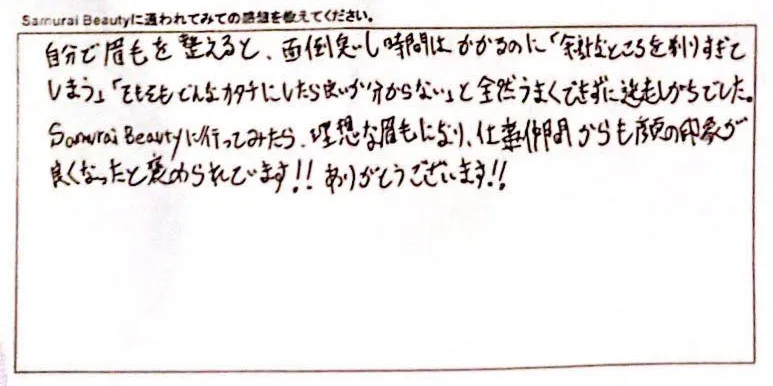 Samurai Beautyに通われてみての感想を教えてください。
自分で眉毛を整えると、面倒臭いし時間はかかるのに「余計なところを剃りすぎて
しまう」「そもそもどんなカタチにしたら良いか分からない」と全然うまくできずに迷走しがちでした。
Samurai Beautyに行ってみたら、理想な眉毛になり、仕事仲間からも顔の印象が
良くなったと褒められています!! ありがとうございます!!